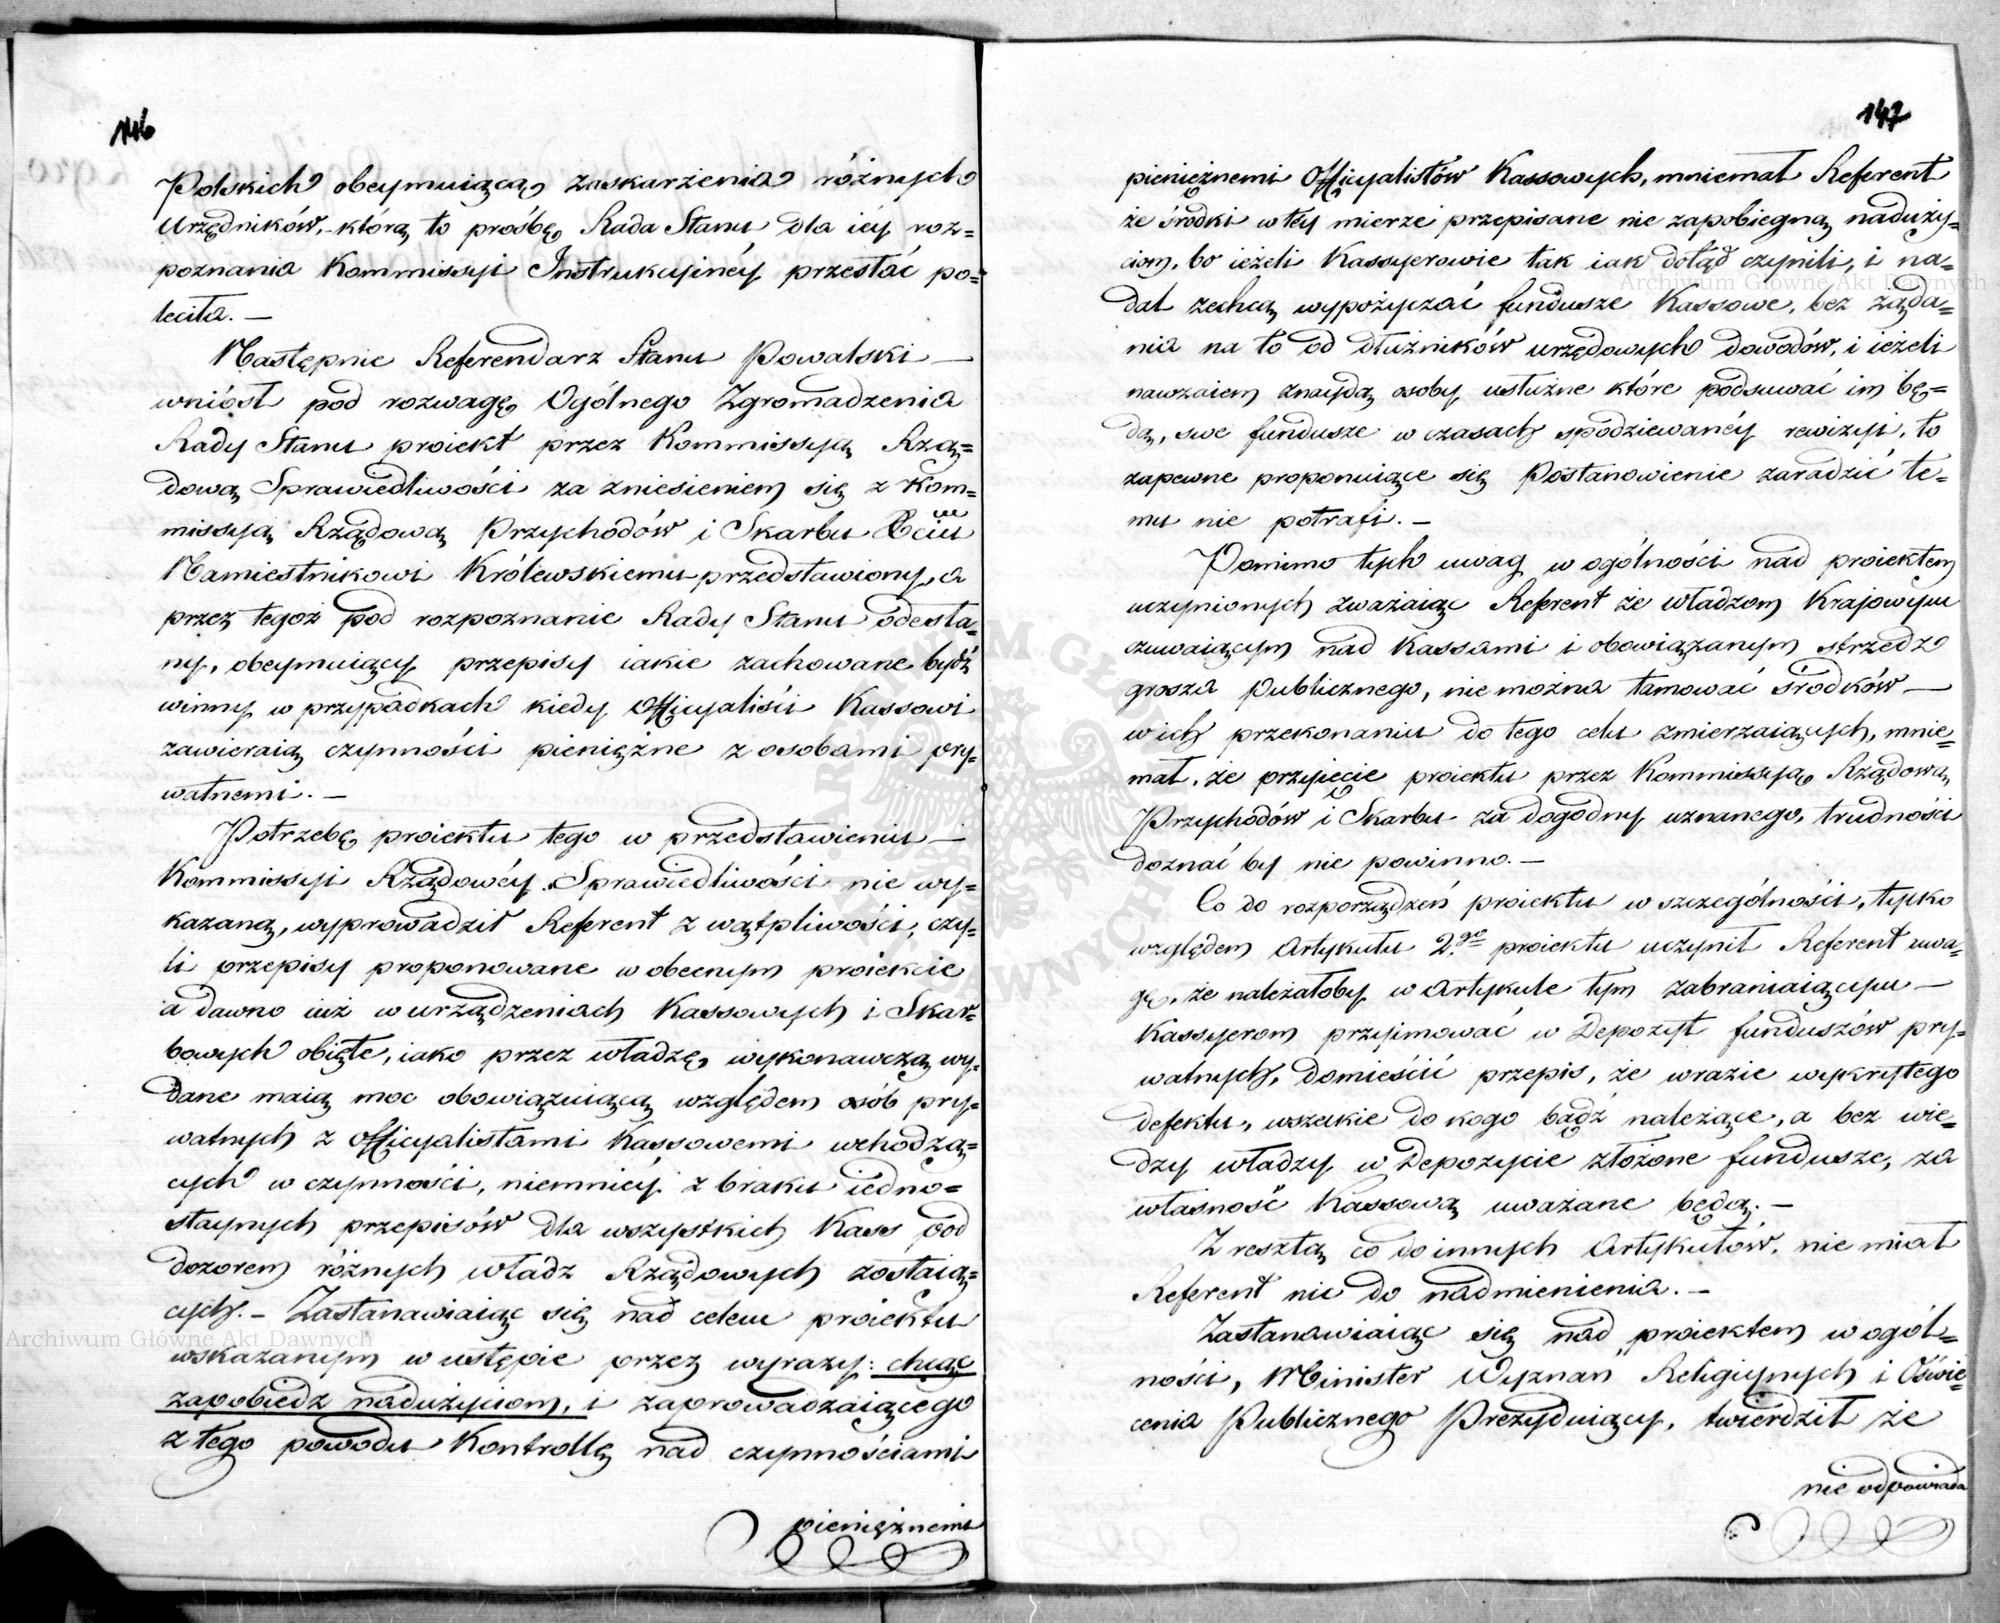 146
Polskich obeymuiącą zaskarżenia różnych
Urzędników, którą to prośbę Rada Stanu dla iey roz=
poznania Kommissyi Instrukcyinéy przesłać po=
leciła. —
Następnie Referendarz Stanu Powalski —
wniósł pod rozwagę Ogólnego Zgromadzenia
Rady Stanu proiekt przez Kommissyą Rzą=
dową Sprawiedliwości za zniesieniem się z Kom=
missyą Rządową Przychodów i Skarbu Xciu
Namiestnikowi Królewskiemu przedstawiony, a
przez tegoż pod rozpoznanie Rady Stanu odesła=
ny, obeymuiący przepisy iakie zachowane bydź
winny w przypadkach kiedy Officyaliści Kassowi
zawieraią czynności pieniężne z osobami pry=
watnemi. —
Potrzebę proiektu tego w przedstawieniu —
Kommissyi Rządowéy Sprawiedliwości nie wy=
kazaną, wyprowadził Referent z wątpliwości, czy=
li przepisy proponowane w obecnym proiekcie
a dawno iuż w urządzeniach Kassowych i Skar=
bowych obięte, iako przez władzę wykonawczą wy=
dane maią moc obowiązuiącą względem osób pry=
watnych z Officyalistami Kassowemi wchodzą=
cych w czynności, niemniéy z braku iedno=
staynych przepisów dla wszystkich Kass pod
dozorem różnych władz Rządowych zostaią=
cych. — Zastanawiaiąc się nad celem proiektu
wskazanym w wstępie przez wyrazy: chcąc
zapobiedz nadużyciom, i zaprowadzaiącego
z tego powodu Kontrollę nad czynnościami
pieniężnemi
147
pieniężnemi Officyalistów Kassowych, mniemał Referent
że środki w tey mierze przepisane nie zapobiegną naduży=
ciom, bo ieżeli Kassyerowie tak iak dotąd czynili, i na=
dal zechcą wypożyczać fundusze Kassowe, bez żąda=
nia na to od dłużników urzędowych dowodów, i ieżeli
nawzaiem znaydą osoby usłużne które podsuwać im bę=
dą, swe fundusze w czasach spodziewanéy rewizyi, to
zapewne proponuiące się Postanowienie zaradzić te=
mu nie potrafi. —
Pomimo tych uwag w ogólności nad proiektem
uczynionych zważaiąc Referent że władzom Krajowym
czuwaiącym nad Kassami i obowiązanym strzedz
grosza publicznego, nie można tamować środków —
w ich przekonaniu do tego celu zmierzaiących, mnie=
mał, że przyięcie proiektu przez Kommissyą Rządową
Przychodów i Skarbu za dogodny uznanego, trudności
doznać by nie powinno. —
Co do rozporządzeń proiektu w szczególności, tylko
względem Artykułu 2.go proiektu uczynił Referent uwa=
gę, że należałoby w Artykule tym zabraniaiącym —
Kassyerom przyimować w Depozyt funduszów pry=
watnych, domieścić przepis, że w razie wykrytego
defektu, wszelkie do kogo bądź należące, a bez wie=
dzy władzy w Depozycie złożone fundusze, za
własność Kassową uważane będą. —
Z resztą co do innych Artykułów, nie miał
Referent nic do nadmienienia. —
Zastanawiaiąc się nad proiektem w ogól=
ności, Minister Wyznań Religiynych i Oświe=
cenia Publicznego Prezyduiący, twierdził że
nie odpowiada
Archiwum Główne Akt Dawnych
Archiwum Główne Akt Dawnych